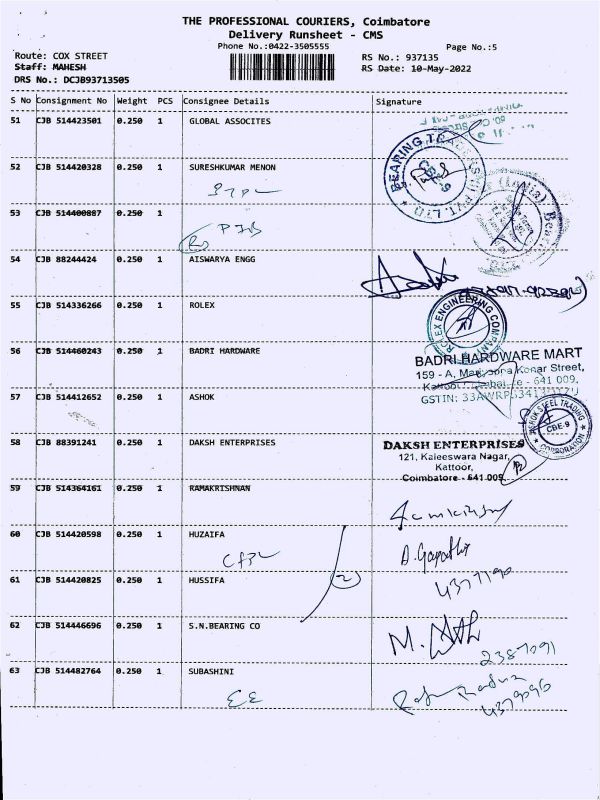 THE PROFESSIONAL COURIERS, Coimbatore
Delivery Runsheet - CMS
Phone No.:0422-3505555
Page No.:5
Route: COX STREET
RS No.: 937135
Staff: MAHESH
RS Date: 10-May-2022
DRS No.: DCJB93713505
S No Consignment No Weight PCS Consignee Details Signature
51 CJB 514423501 0.250 1 GLOBAL ASSOCITES
BEARING
PVT. LTD
52 CJB 514420328 0.250 1 SURESHKUMAR MENON
53 CJB 514400887 0.250 1
54 CJB 88244424 0.250 1 AISWARYA ENGG
55 CJB 514336266 0.250 1 ROLEX
ROLEX ENGINEERING COMPANY
56 CJB 514460243 0.250 1 BADRI HARDWARE
BADRI HARDWARE MART
159 - A, Konar Street,
641 009.
57 CJB 514412652 0.250 1 ASHOK
GSTIN:
ASHOK STEEL TRADING
CORPORATION
CBE-9
58 CJB 88391241 0.250 1 DAKSH ENTERPRISES
DAKSH ENTERPRISES
121, Kaleeswara Nagar,
Kattoor,
Coimbatore - 641 009.
59 CJB 514364161 0.250 1 RAMAKRISHNAN
60 CJB 514420598 0.250 1 HUZAIFA
61 CJB 514420825 0.250 1 HUSSIFA
2
62 CJB 514446696 0.250 1 S.N.BEARING CO
2387091
63 CJB 514482764 0.250 1 SUBASHINI